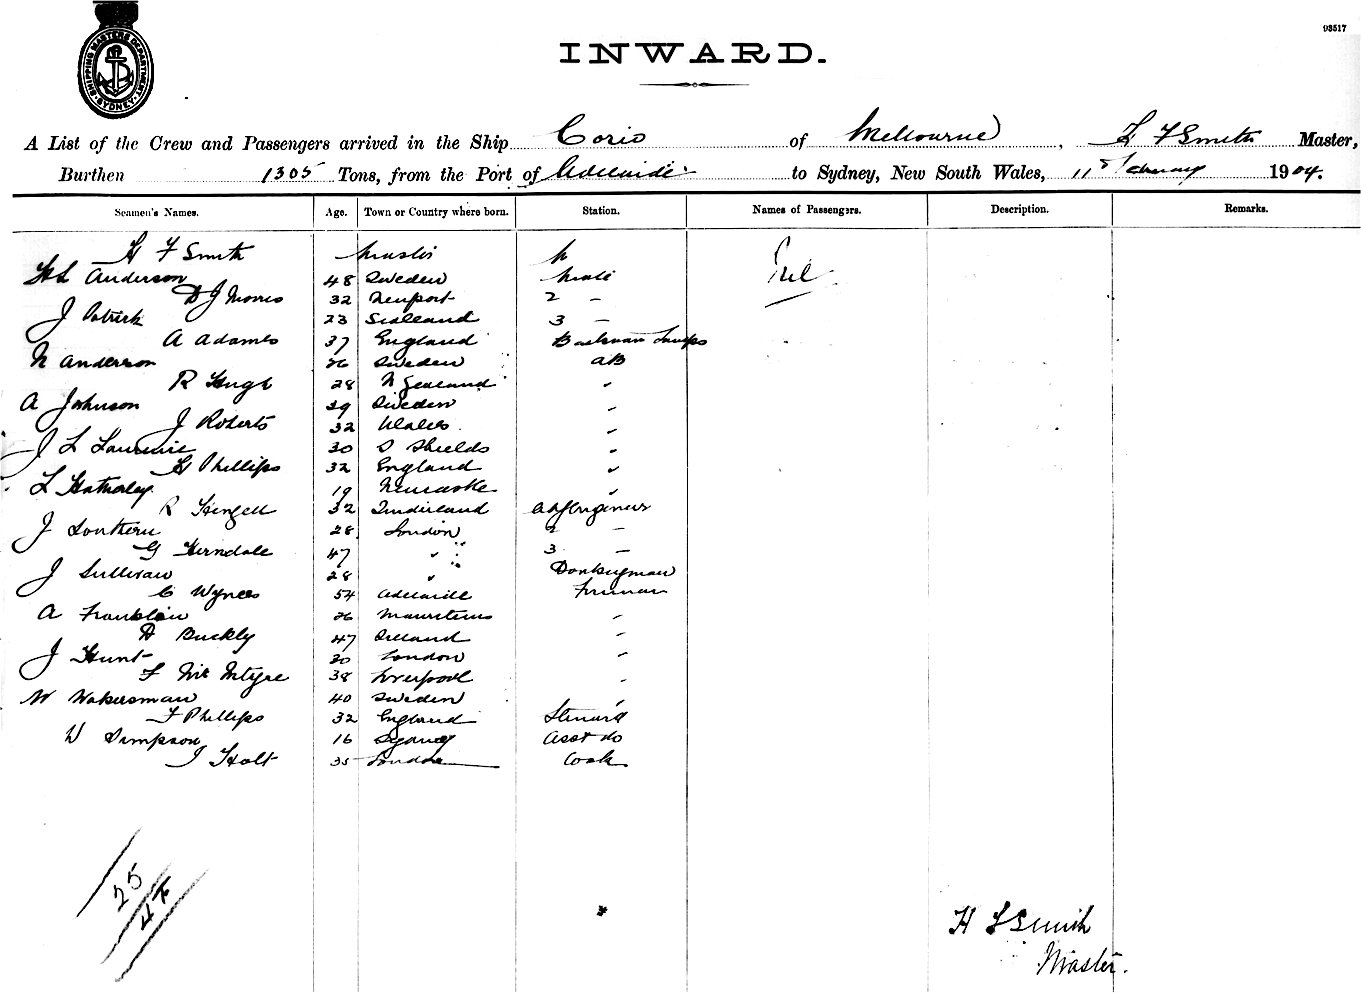 SHIPPING MASTERS DEPARTMENT SYDNEY
93517
INWARD.
A List of the Crew and Passengers arrived in the Ship Corio of Melbourne, F Smith Master,
Burthen 1305 Tons, from the Port of Adelaide to Sydney, New South Wales, 11 February 1904.
Seamen's Names. Age. Town or Country where born. Station. Names of Passengers. Description. Remarks.
H F Smith Master Nil
Anderson 48 Sweden Mate
D J Morris 32 Newport 2 -
J Patrick 23 Scotland 3 -
A Adams 37 England Lamps
N Anderson 26 Sweden AB
R Hugh 28 N Zealand "
A Johnson 29 Sweden "
J Roberts 32 Wales "
J L Laurence 30 S Shields "
H Phillips 32 England "
L Hatherley 19 Newcastle "
R 32 Sunderland Engineer
J Southern 28 London 2 -
G Ferndale 47 " " 3 -
J Sullivan 28 " Donkeyman
C 54 Adelaide Fireman
A Franklin 26 Mauritius "
D Buckly 47 Ireland "
J Hunt 30 London "
F McIntyre 38 Liverpool "
W Wakersman 40 Sweden "
F Phillips 32 England Steward
W Simpson 16 Sydney Asst do
J Holt 35 London Cook
25
H F Smith
Master.